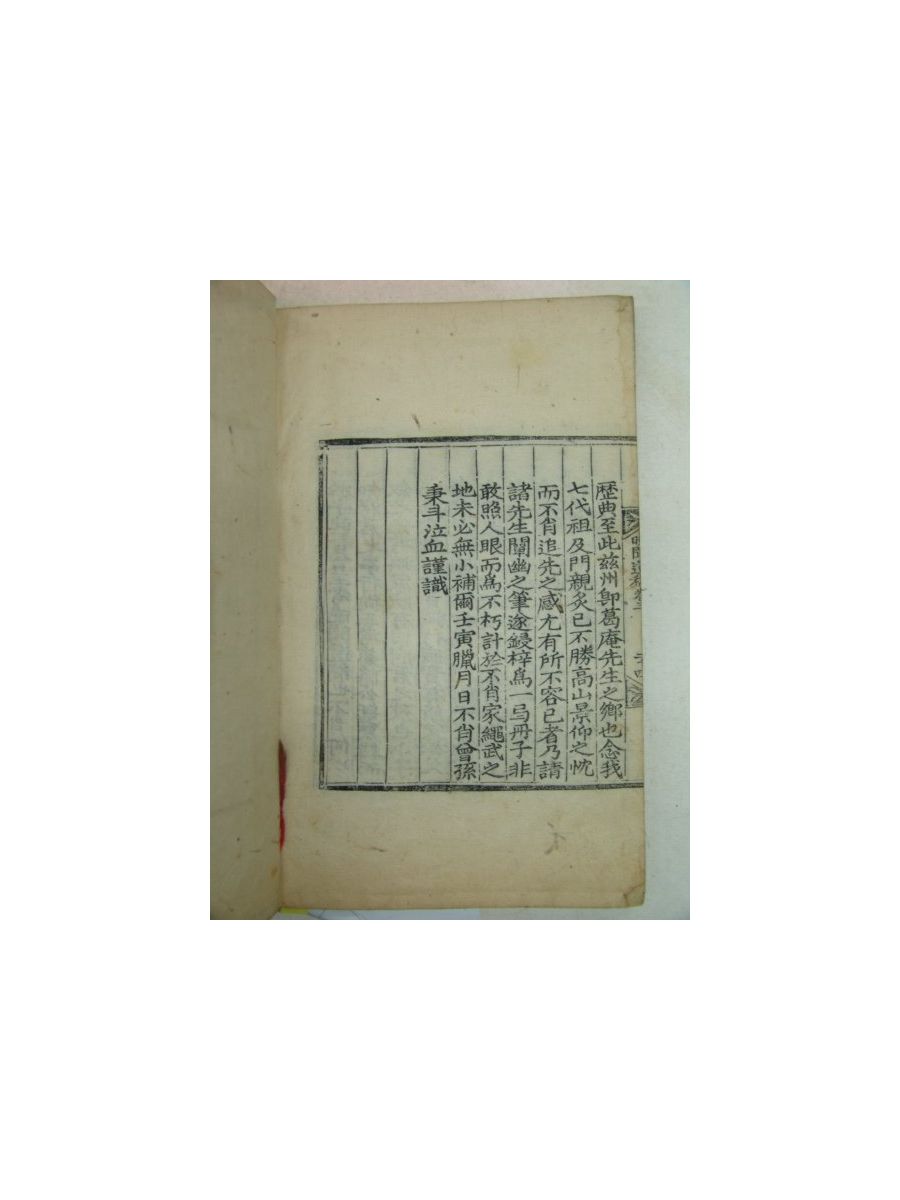 歷典至此兹州卽葛庵先生之鄉也念我
七代祖及門親炙已不勝高山景仰之忱
而不肖追先之感尤有所不容已者乃請
諸先生闡幽之筆遂鋟梓爲一弓冊子非
敢照人眼而爲不朽計於不肖家繩武之
地未必無小補爾壬寅臘月日不肖曾孫
秉斗泣血謹識